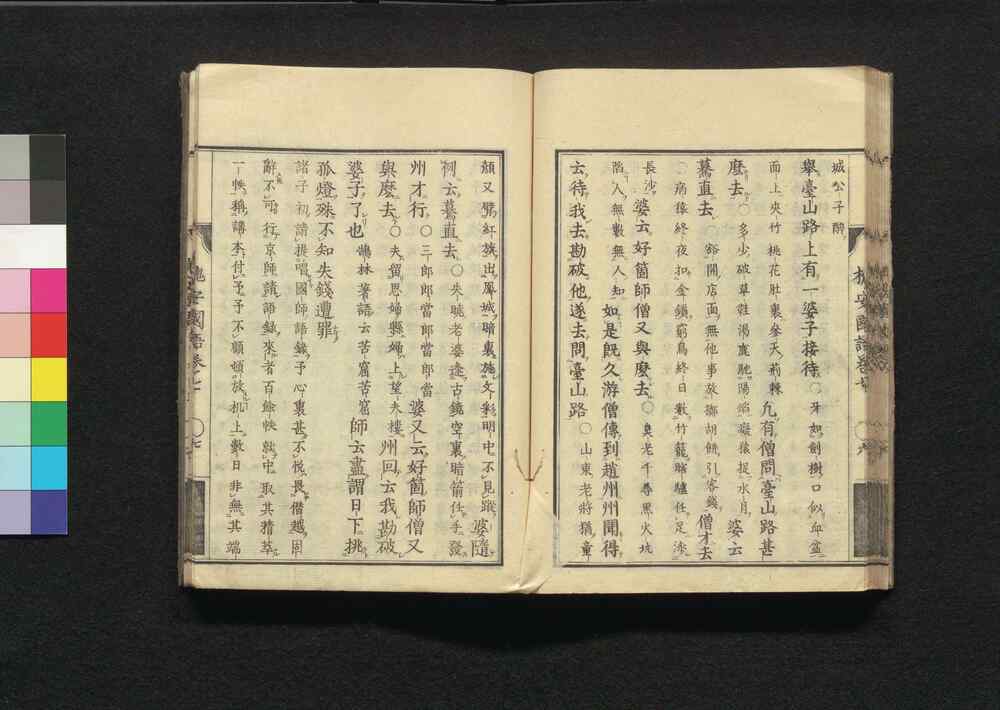 城公子醉
擧臺山路上有一婆子接待○牙如劍樹口似血盆
面上夾竹桃花肚裏參天荊棘凢有僧問臺山路甚
麽去○多少破草鞋湯鹿馳陽焰癡猿捉水月婆云
驀直去○谿開店面無他事故擲胡餅引客錢僧才去
○病猿終夜扣金鎖窮鳥終日數竹籠瞎驢任足渉
長沙婆云好箇師僧又與麽去○臭老千尋黒火坑
陷人無數無人知如是旣久游僧傳到趙州州聞得
云待我去勘破他遂去問臺山路○山東老將猶童
顏又擘紅旗出鳳城暗裏施文彩明中不見蹤婆隨
例云驀直去○失曉老婆逢古鏡空裏暗箭任手發
州才行○三郎郎當郎當郎當婆又云好箇師僧又
與麽去○夫留恩婦縣婦上望夫樓州回云我勘破
婆子了也鵠林著語云苦屈苦屈師云盡謂日下挑
孤燈殊不知失錢遭罪
諸子初請提唱國師語録予心裏甚不悦畏僭越固
辭不可行京師請語録來者百餘帙就中取其糟萃
一帙稱講本付予予不顧頓放机上數日非無其端
槐安國語卷七 ○七